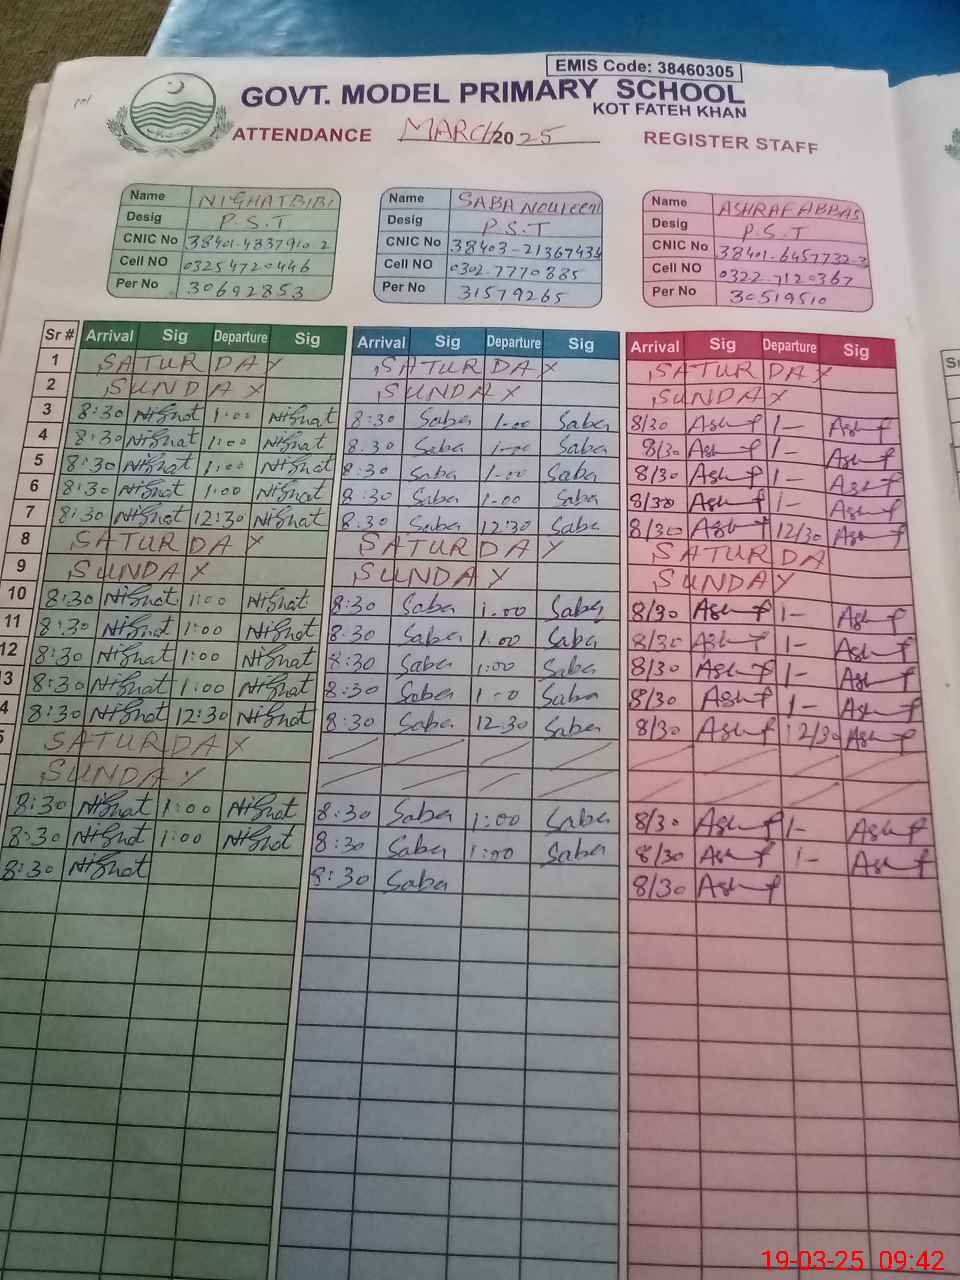 EMIS Code: 38460305
GOVT. MODEL PRIMARY SCHOOL
KOT FATEH KHAN
ATTENDANCE MARCH 2025 REGISTER STAFF
Name NIGHATBIBI Name SABA NOUREEN Name ASHRAF ABBAS
Desig P.S.T Desig P.S.T Desig P.S.T
CNIC No 38401-4337910-2 CNIC No 38403-2136743 CNIC No 38401-6457732-3
Cell NO 03254720446 Cell NO 0302-7770885 Cell NO 0322-7120367
Per No 30692853 Per No 31579265 Per No 30519510
Sr # Arrival Sig Departure Sig Arrival Sig Departure Sig Arrival Sig Departure Sig
1 SATURDAY SATURDAY SATURDAY
2 SUNDAY SUNDAY SUNDAY
3 8:30 Nighat 1:00 Nighat 8:30 Saba 1-00 Saba 8/30 Ashraf 1- Ashraf
4 8:30 Nighat 1:00 Nighat 8.30 Saba 1-00 Saba 8/30 Ashraf 1- Ashraf
5 8:30 Nighat 1:00 Nighat 8:30 Saba 1-00 Saba 8/30 Ashraf 1- Ashraf
6 8:30 Nighat 1:00 Nighat 8:30 Saba 1-00 Saba 8/30 Ashraf 1- Ashraf
7 8:30 Nighat 12:30 Nighat 8:30 Saba 12:30 Saba 8/30 Ashraf 12/30 Ashraf
8 SATURDAY SATURDAY SATURDA
9 SUNDAY SUNDAY SUNDAY
10 8:30 Nighat 1:00 Nighat 8:30 Saba 1-00 Saba 8/30 Ashraf 1- Ashraf
11 8:30 Nighat 1:00 Nighat 8.30 Saba 1.00 Saba 8/30 Ashraf 1- Ashraf
12 8:30 Nighat 1:00 Nighat 8:30 Saba 1:00 Saba 8/30 Ashraf 1- Ashraf
13 8:30 Nighat 1:00 Nighat 8:30 Saba 1:00 Saba 8/30 Ashraf 1- Ashraf
4 8:30 Nighat 12:30 Nighat 8:30 Saba 12-30 Saba 8/30 Ashraf 12/30 Ashraf
5 SATURDAY
SUNDAY
8:30 Nighat 1:00 Nighat 8:30 Saba 1:00 Saba 8/30 Ashraf 1- Ashraf
8:30 Nighat 1:00 Nighat 8:30 Saba 1:00 Saba 8/30 Ashraf 1- Ashraf
8:30 Nighat 8:30 Saba 8/30 Ashraf
19-03-25 09:42